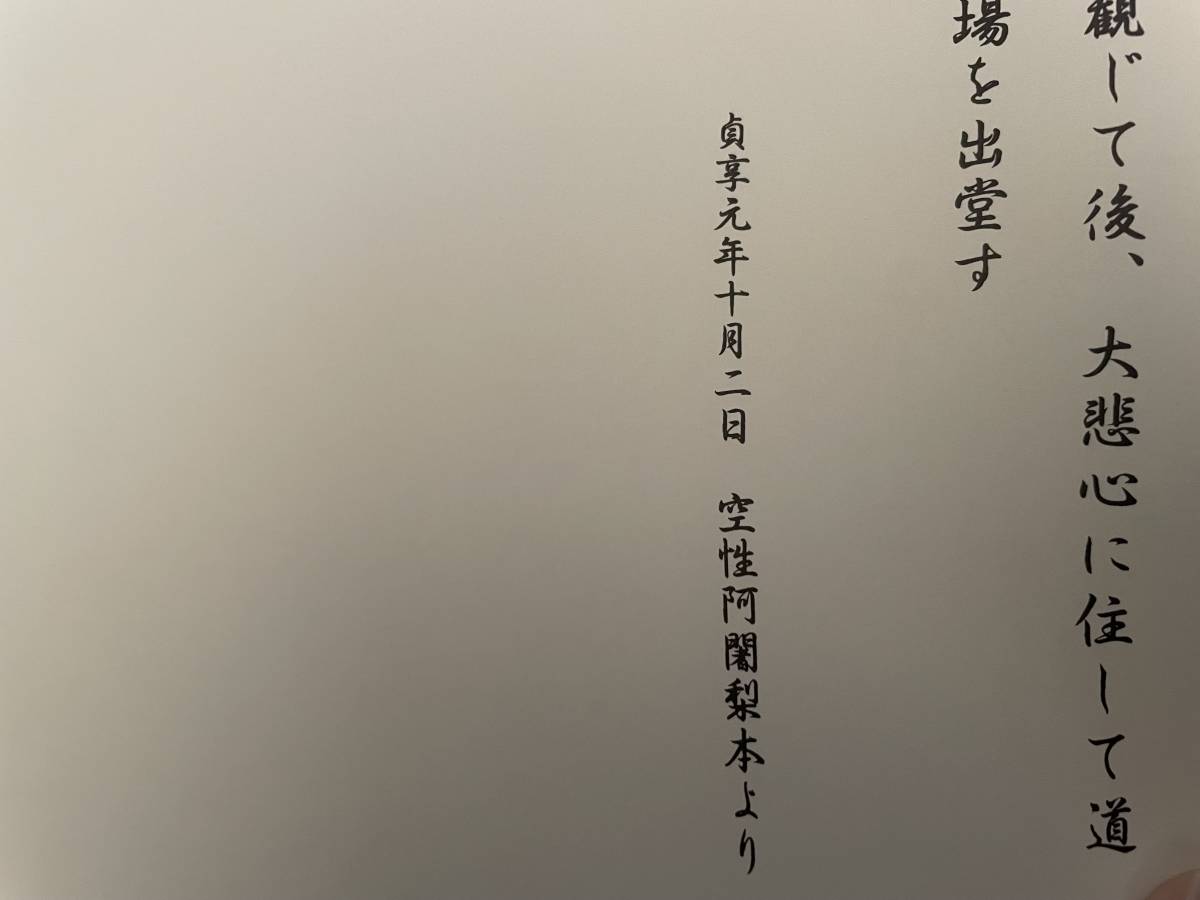 観じて後、大悲心に住して道
場を出堂す
貞享元年十月二日　空性阿闍梨本より